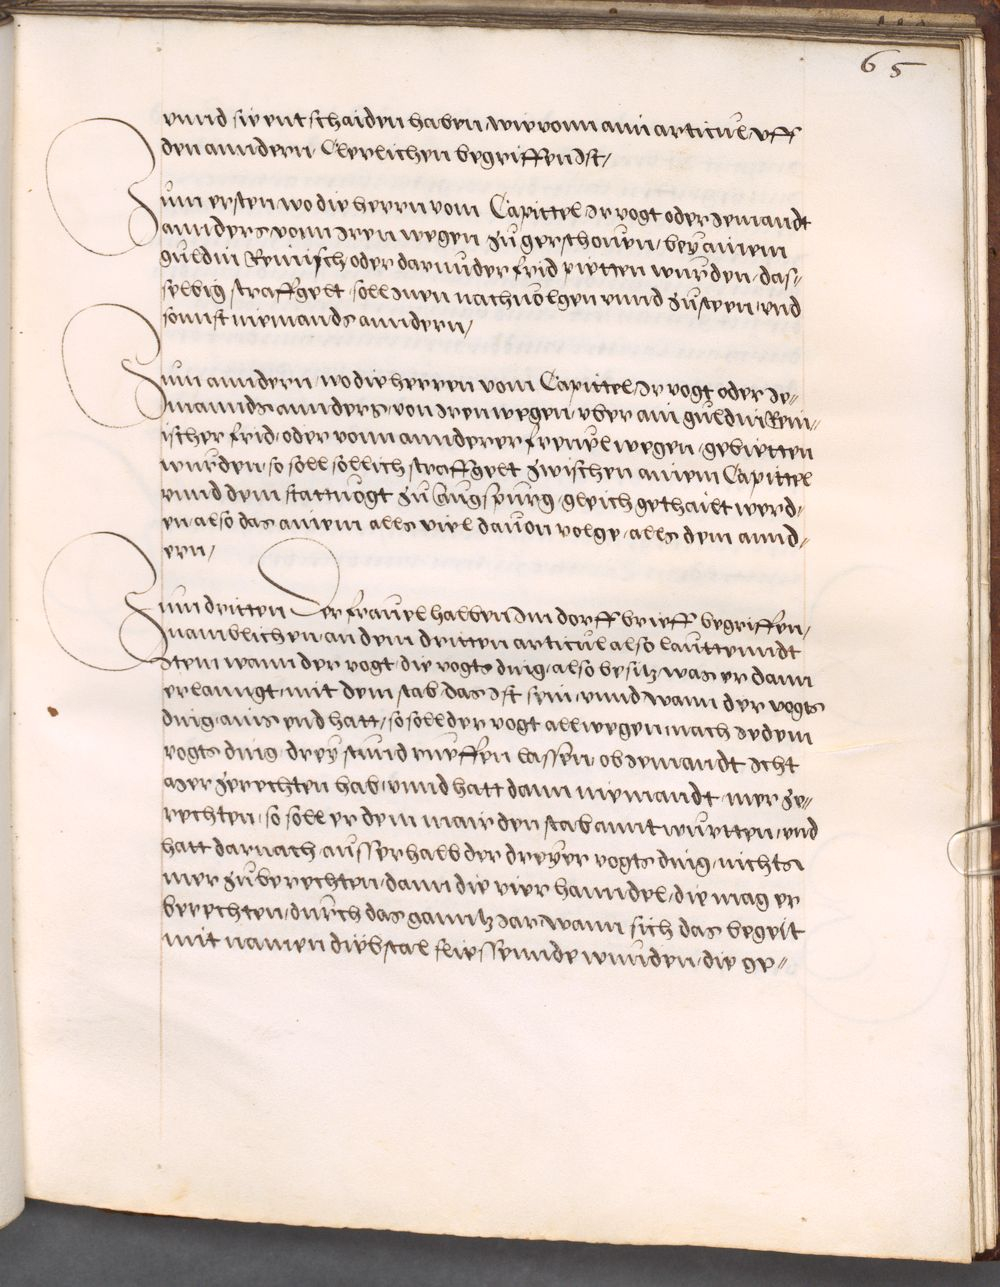 65
vnnd sie entschaiden haben, wie vonn aim articul vff
den anndern, Clerlichen begriffen Ist,
Zum ersten wo die herrn vom Capittel Ir vogt oder Jemandt
annders vonn Iren wegen zu gersthouen, bey ainem
guldin Reinisch oder darunder frid pietten wurden, das-
selbig straffgelt soll Inen nachuolgen vnnd zusteen, vnd
sonnst niemands anndern,
Zum anndern, wo die herren vom Capittel, Ir vogt oder Je-
mannds annders, von Iren wegen, vber ain guldin Rein-
ischer frid, oder vonn annderer freuel wegen, gebietten
wurden, so soll sollich straffgelt zwischen ainem Capittel
vnnd dem stattuogt zu Augspurg, gleich gethailt werd-
en, also das ainem alls viel dauon volge, alls dem annd-
ern,
Zum dritten Der frauel halben Im dorff brieff begriffen,
namblichen an dem dritten articul also lauttenndt
Item wann der vogt, die vogts ding, also besitz, was er dann
erlanngt, mit dem stab, das Ist sein, vnnd wann der vogts
ding, ains end hatt, so soll der vogt allwegen, nach Jedem
vogts ding, drey stund rueffen lassen, ob Jemandt Icht
mer zerechten hab, vnnd hatt dann niemandt, mer ze-
rechten, so soll er dem mair den stab anntwurtten, vnd
hatt darnach, ausserhalb der dreyer vogts ding, nichts
mer zuberechten, dann die vier hanndel, die mag er
berechten, durch das ganntz Iar, wann sich das begeit
mit namen diebstal, fliessennde wunden, die ge-